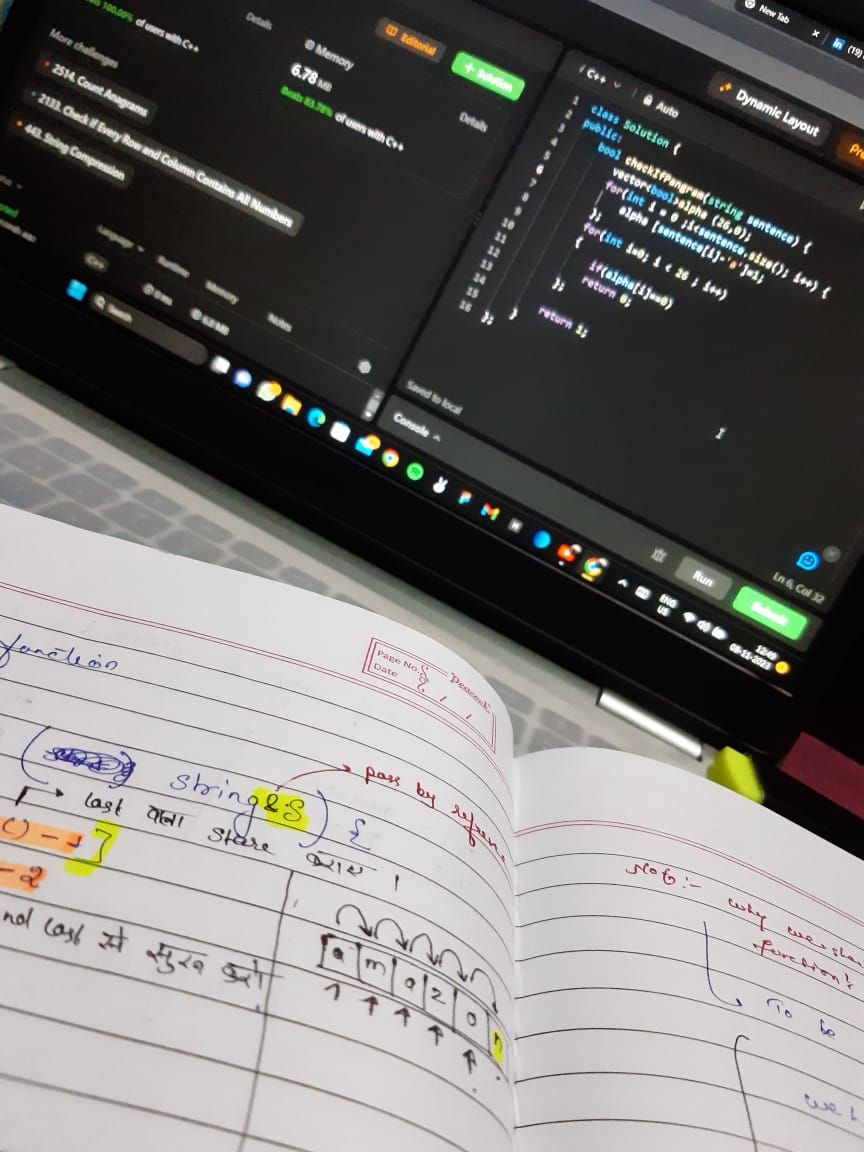 100.00% of users with C++
Details
More challenges
2514. Count Anagrams
2133. Check if Every Row and Column Contains All Numbers
443. String Compression
Memory
6.78 MB
Beats 83.78% of users with C++
Details
Editorial
+ Solution
Language
Runtime
Memory
Notes
C++
0 ms
6.8 MB
Search
New Tab
(19)
Dynamic Layout
C++
Auto
1 class Solution {
2 public:
3 bool checkIfPangram(string sentence) {
4 vector<bool>alpha (26,0);
5 for(int i = 0 ;i<sentence.size(); i++) {
6 alpha [sentence[i]-'a']=1;
7 };
8 for(int i=0; i < 26 ; i++)
9 {
10
11 if(alpha[i]==0)
12 return 0;
13 };
14 return 1;
15 }
16 };
Saved to local
Console
Run
Submit
Ln 6, Col 32
ENG
US
12:49
08-11-2023
function
Page No.
Date
Peacock
( string &S ) {
pass by
last वाला store
() - 1]
- 2
last से
a m a z o n
Note:- why
function?
To be